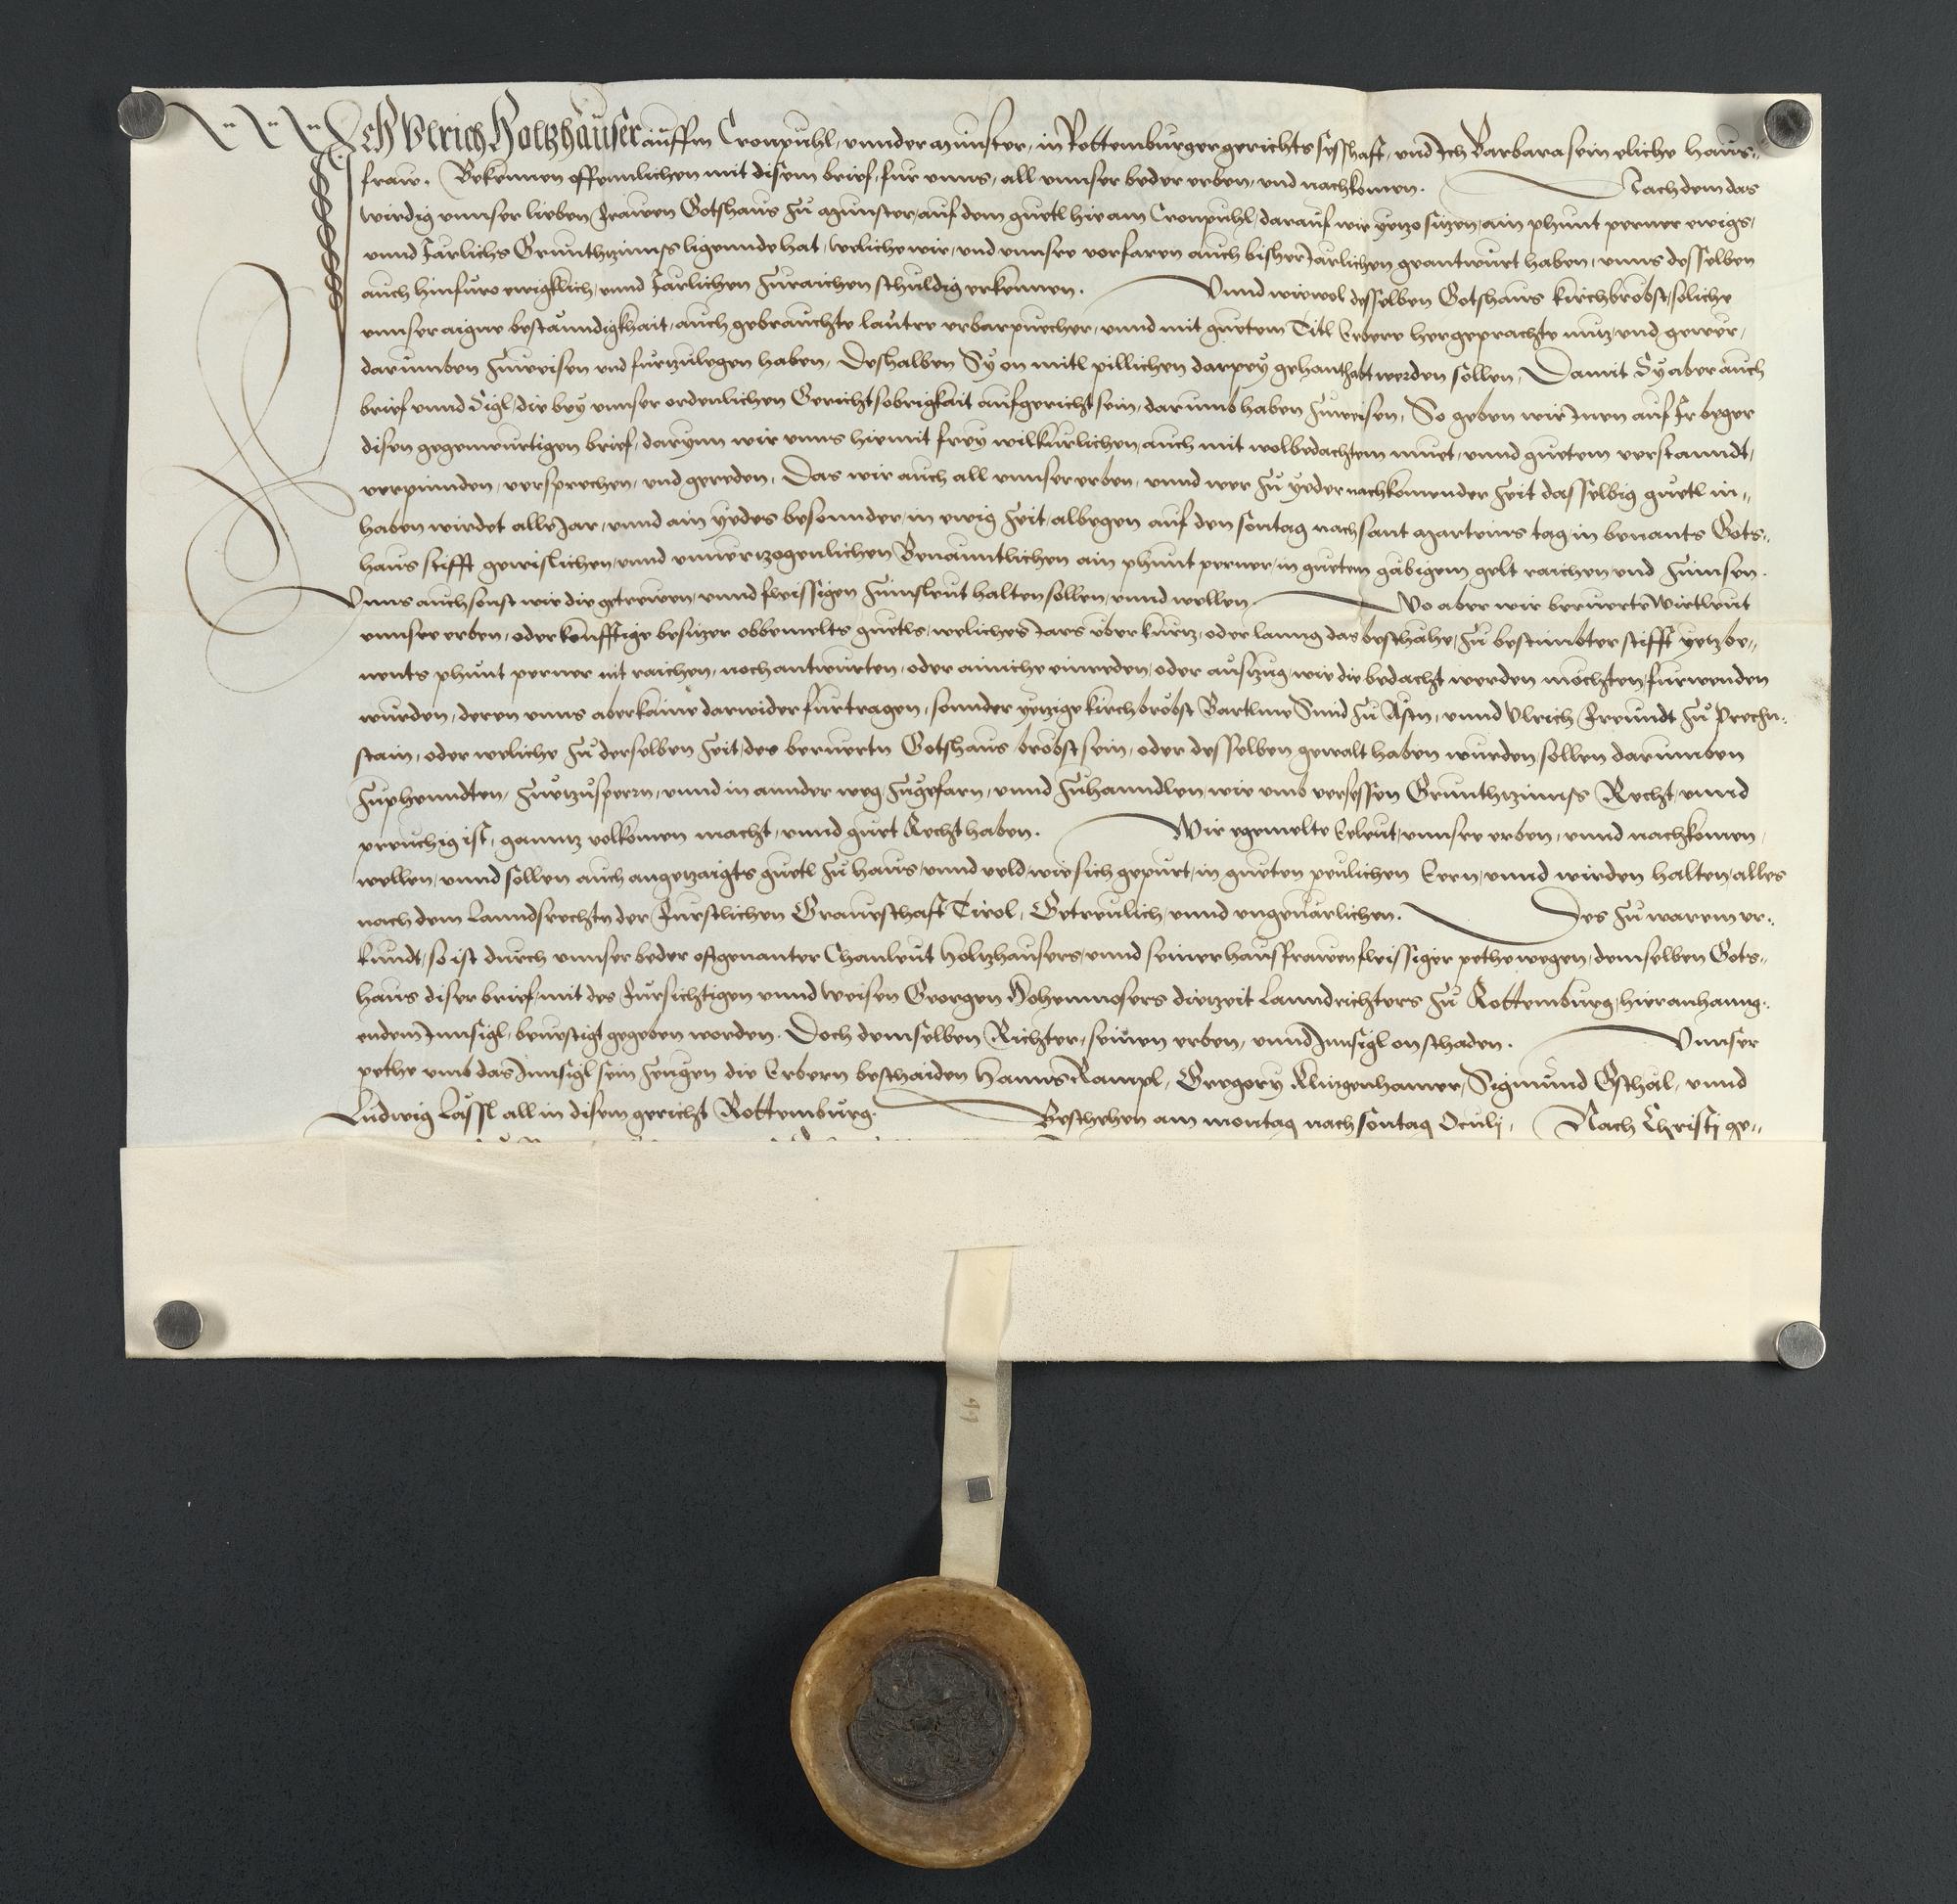 Ich Ulrich Holtzhauser auffm Cronpuhl, vnnder Munster, in Rottemburger gerichts sesshaft, vnd Ich Barbara sein eliche Haus=
fraw. Bekennen offennlichen mit disem brief, fur vnns, all vnnser beder erben, vnd nachkomen. Nachdem das
wirdig vnnser lieben Frawen Gotshaus zu Munster, auf dem guetl hie am Cronpuhl, darauf wir yetzo sitzen, ain phunt perner ewigs,
vnnd Jarlichs Grunthzinnss ligennde hat, weliche wir, vnd vnnsre vorfaren auch bisher Jarlichen geantwurt haben, vnns desselben
auch hinfuro ewigklich, vnnd Jarlichen zuraichen schuldig erkennen. Vnnd wiewol desselben Gotshaus kirchbröbst, soliche
vnnser aigne bestanndigkhait, auch gebrauchte lautre vrbarpuecher, vnnd mit guetem Titl Erbere hergeprachte nutz, vnd gewer,
darumben zuweisen vnd furtzulegen haben, Deshalben Sy on mitl pillichen darpey gehannthabt werden sollen, Damit Sy aber auch
brief vnnd Sigl, die bey vnnser ordenlichen Gerichtsobrigkait aufgericht sein, darumb haben zuweisen, So geben wir Inen auf Ir beger
disen gegenwurtigen brief, darynn wir vnns hiemit frey wilkurlichen, auch mit wolbedachtem muet, vnnd guetem verstanndt,
verpinnden, versprechen, vnd gereden, Das wir auch all vnnser erben, vnnd wer zu yeder nachkomender zeit dasselbig guetl in=
haben wirdet alle Jar, vnnd ain yedes besonnder, in ewig zeit, albegen auf den sontag nach sant Marteins tag in benants Gots=
haus stifft gewislichen, vnnd vnuertzogenlichen Benanntlichen ain phunt perner, in guetem gäbigem gelt raichen, vnd zinnsen.
Vnns auch sonst wie die getrewen, vnnd fleissigen zinnsleut halten sollen, vnnd wellen. Wo aber wir beruerte Wirtleut
vnnsre erben, oder konfftige besitzer obbemelts guetls, weliches Jars uber kurtz, oder lanng das beschähe, zu bestimbter stifft yetz be=
nents phunt perner nit raichen, noch antwurten, oder ainiche einreden, oder auszug, wie die bedacht werden möchten, furwenden
wurden, deren vnns aber kaine darwider furtragen, sonnder yetzige kirchbröbst Bartlme Sund zu Asten, vnnd Ulrich Freundt zu Prechn=
stain, oder weliche zu derselben zeit, des beruertn Gotshaus bröbst sein, oder desselben gewalt haben wurden, sollen darumben
zuphenndten, Furtzusperrn, vnnd in annder weg zugefarn, vnnd zuhanndlen, wie vmb versessen Grunthzinnss Recht, vnnd
preuchig ist, ganntz volkomen macht, vnnd guet Recht haben. Wir egemelte Eeleut, vnnsre erben, vnnd nachkomen,
wellen, vnnd sollen auch angetzaigts guetl zu haus, vnnd veld, wie sich gepurt, in gueten peulichen Eern, vnnd wirden halten, alles
nach dem Lanndsrechtn der Furstlichen Graueschaft Tirol, Getreulich, vnnd vngeuarlichen. Des zu warem vr=
kundt, so ist durch vnnser beder oftgenanter Chonleut Holtzhausers, vnnd seiner hausfrawen fleissiger pethe wegen, demselben Gots=
haus diser brief, mit des Fursichtigen vnnd Weisen Georgen Hohenmosers dietzeit Lanndrichters zu Rottemburg, hieranhanng=
endem Innsigl, beuestigt gegeben worden. Doch demselben Richter, seinen erben, vnnd Innsigl on schaden. Vnnser
pethe vmb das Innsigl sein zeugen die Erbern beschaiden Hanns Rampl, Gregory Klingenhamer, Sigmund Gschäl, vnnd
Ludwig Lässl all in disem gericht Rottemburg. Beschehen am montag nach sontag Oculj, Nach Christj ge=